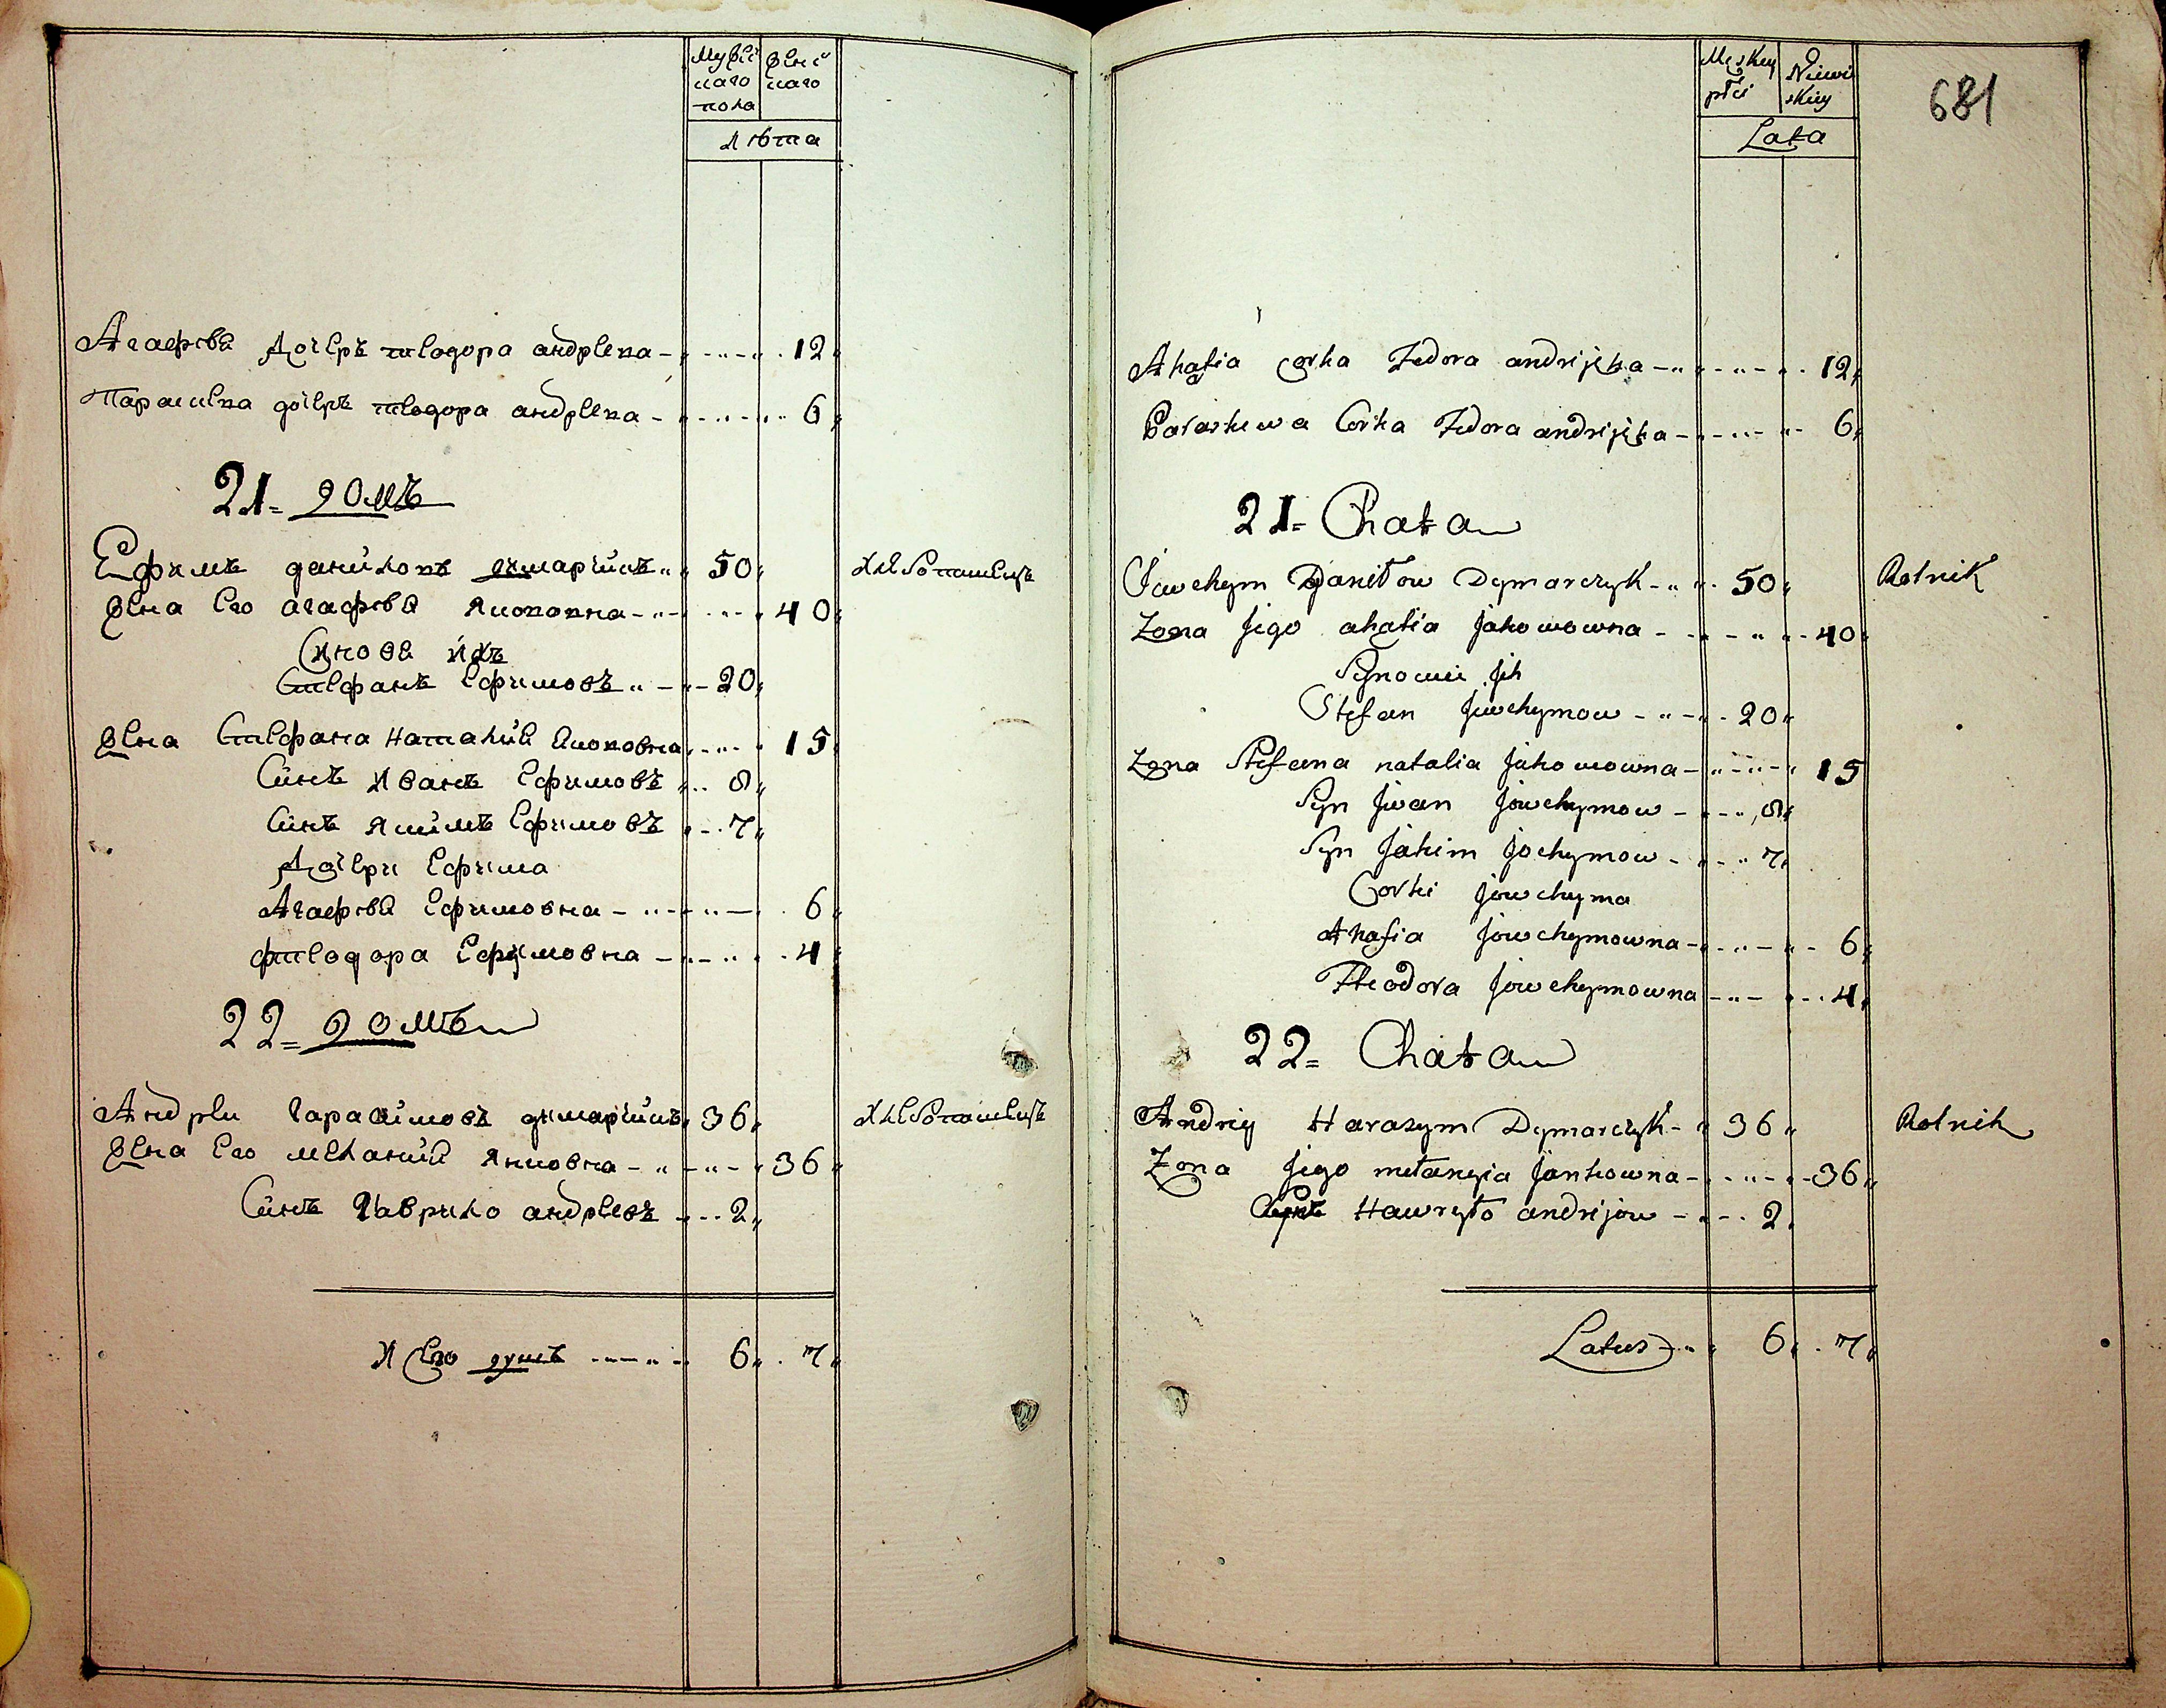 Мужескаго пола
Женскаго
Лѣта
Агафія дочеръ теодора андрѣека 12
Парасивка дочеръ теодора андрѣека 6
21 домъ
Ефимъ данилювъ димарчикъ 50 Хлебопашецъ
Жена Его агафія Якововна 40
Синовя ихъ
Стефанъ Ефимовъ 20
Жена Стефана наталия Якововна 15
Синъ Иванъ Ефимовъ 8
Синъ Якимъ Ефимовъ 7
Дочери Ефима
Агафія Ефимовна 6
фтеодора Ефимовна 4
22 домъ
Андреи Гарасимовъ димарчикъ 36 Хлебопашецъ
Жена Его мелания Янковна 36
Синъ Гаврило андреевъ 2
И Его душъ 6 7
Męskey płci
Niewieskiey
681
Lata
Ahafia Corka Fedora andrijka 12
Paraskewa Corka Fedora andrijka 6
21 Chata
Jowchym Daniłow Dymarczyk 50 Rolnik
Zona Jego ahafia Jakowowna 40
Synowie Jih
Stefan Jiwchymow 20
Zona Stefana natalia Jakowowna 15
Syn Jwan Jowchymow 8
Syn Jakim Jochymow 7
Corki Jowchyma
Ahafia Jowchymowna 6
Fteodora Jowchymowna 4
22 Chata
Andriy Harasym Dymarczyk 36 Rolnik
Zona Jego mełanyia Jankowna 36
Hawryło andrijow 2
Latus 6 7